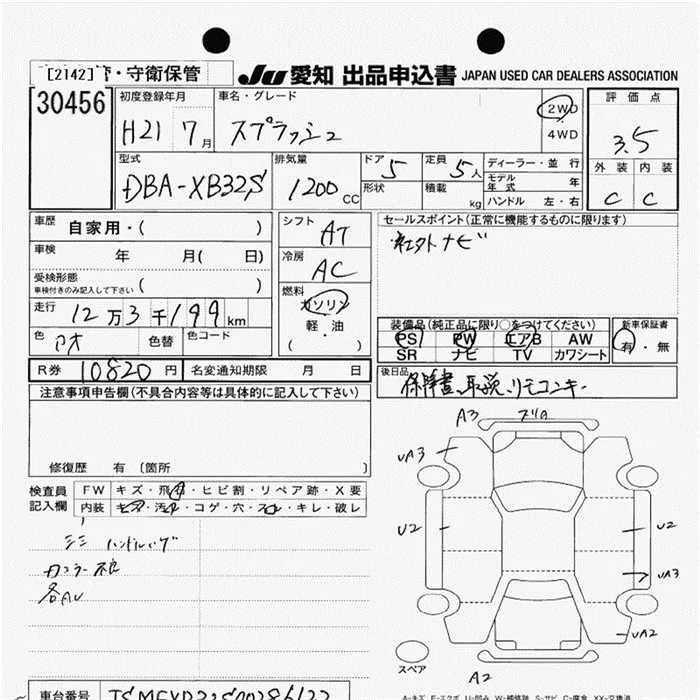 [2142] 管・守衛保管
Ju 愛知 出品申込書 JAPAN USED CAR DEALERS ASSOCIATION
30456
初度登録年月 車名・グレード
H21 7月 スプラッシュ
2WD
4WD
評価点
3.5
外装 内装
C C
型式 排気量 ドア 定員
DBA-XB32S 1200CC 5 5人
形状 積載 kg
ディーラー・並行
モデル年式 年
ハンドル 左・右
車歴 自家用・( )
車検 年 月( 日)
受検形態
車検付きのみ記入して下さい ( )
走行 12万3千199km
色 色替 色コード
シフト AT
冷房 AC
燃料
ガソリン
軽・油
( ・ )
セールスポイント(正常に機能するものに限ります)
社外ナビ
装備品(純正品に限り○をつけてください)
PS PW エアB AW
SR ナビ TV カワシート
新車保証書
有・無
R券 10820円 名変通知期限 月 日
後日品
保証書、取説、リモコンキー
注意事項申告欄(不具合内容等は具体的に記入して下さい)
修復歴 有 (箇所 )
検査員記入欄
FW キズ・飛石・ヒビ割・リペア跡・X要
内装 キズ・汚れ・コゲ・穴・スレ・キレ・破レ
ハンドルハゲ
カラー不良
各AU
A3
UA3
U2
U2
UA3
UA2
スペア
A2
車台番号